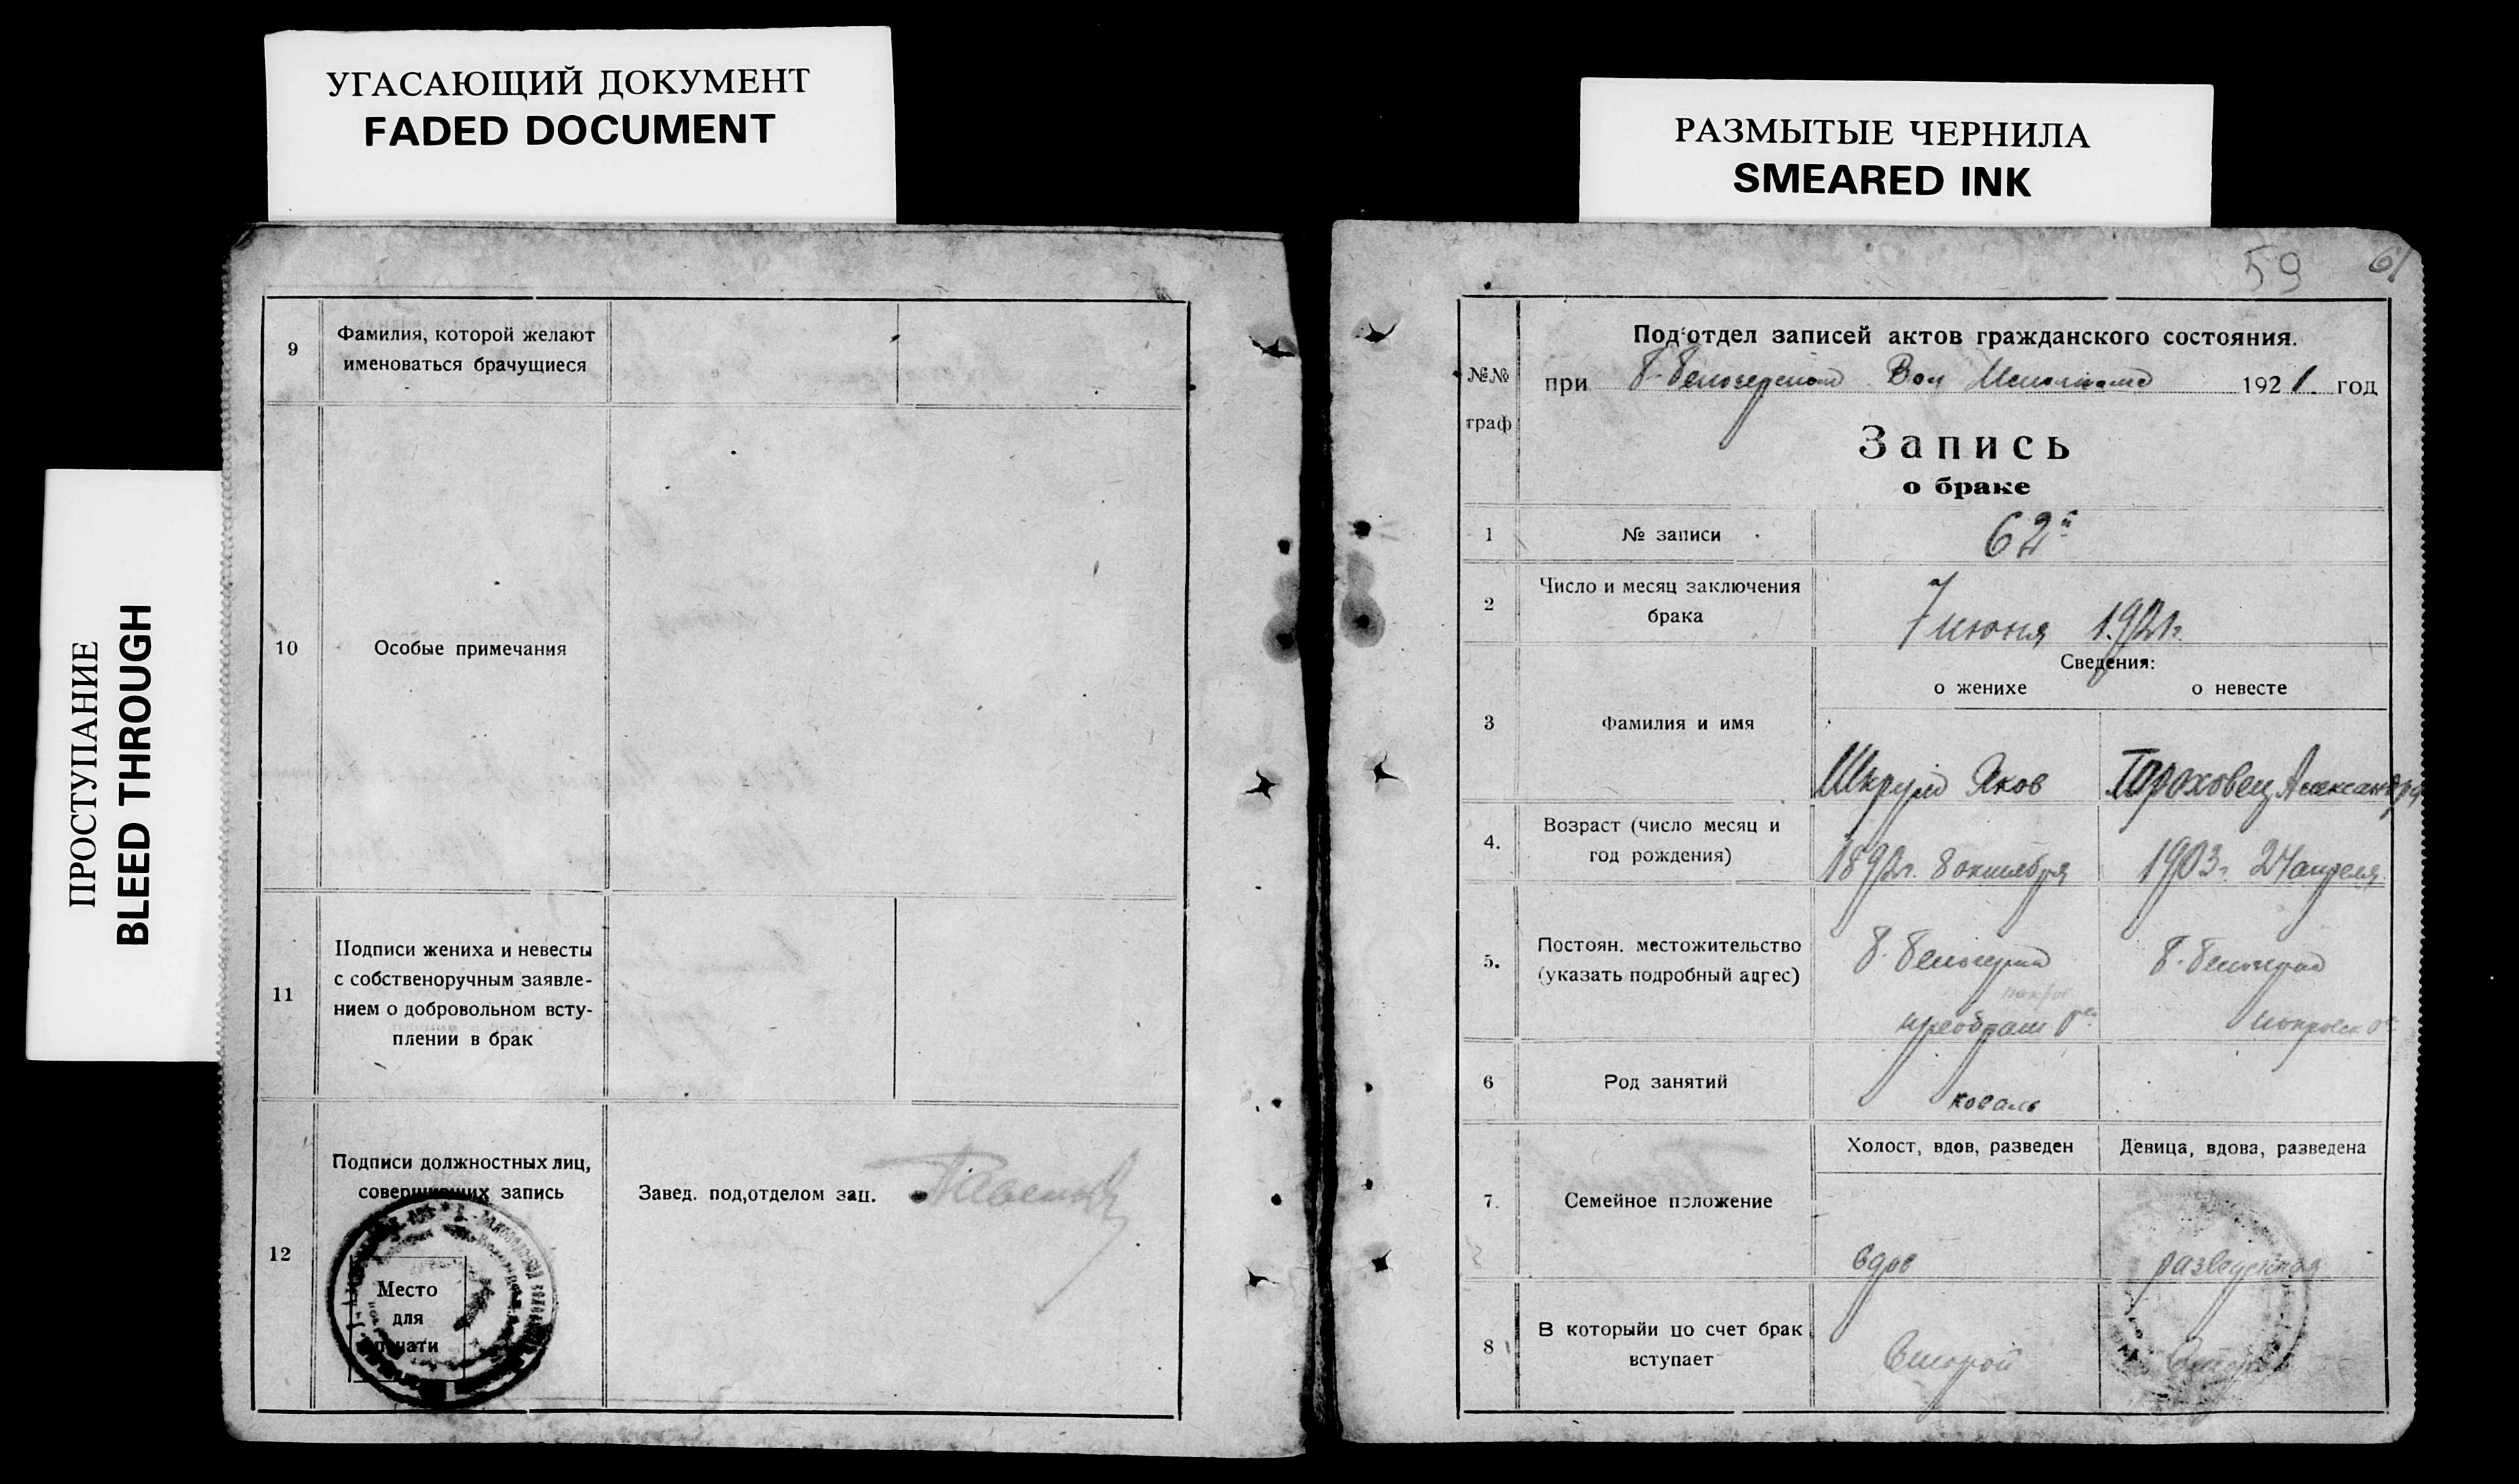 УГАСАЮЩИЙ ДОКУМЕНТ
FADED DOCUMENT
РАЗМЫТЫЕ ЧЕРНИЛА
SMEARED INK
ПРОСТУПАНИЕ
BLEED THROUGH
9
Фамилия, которой желают
именоваться брачущиеся
10
Особые примечания
11
Подписи жениха и невесты
с собственоручным заявле-
нием о добровольном всту-
плении в брак
12
Подписи должностных лиц,
совершивших запись
Завед. под,отделом зап.
Место
для
печати
59
61
№№
граф
Под'отдел записей актов гражданского состояния.
при Б-Белозерском Вол Исполкоме 1921. год
Запись
о браке
1
№ записи
62й
2
Число и месяц заключения
брака
7 июня 1921г.
Сведения:
о женихе
о невесте
3
Фамилия и имя
Яков
Гороховец Александра
4.
Возраст (число месяц и
год рождения)
1892г. 8 октября
1903г. 24 апреля
5.
Постоян. местожительство
(указать подробный адрес)
6
Род занятий
коваль
7.
Семейное положение
Холост, вдов, разведен
Девица, вдова, разведена
вдов
разведенная
8
В которыйи по счет брак
вступает
Второй
Второй